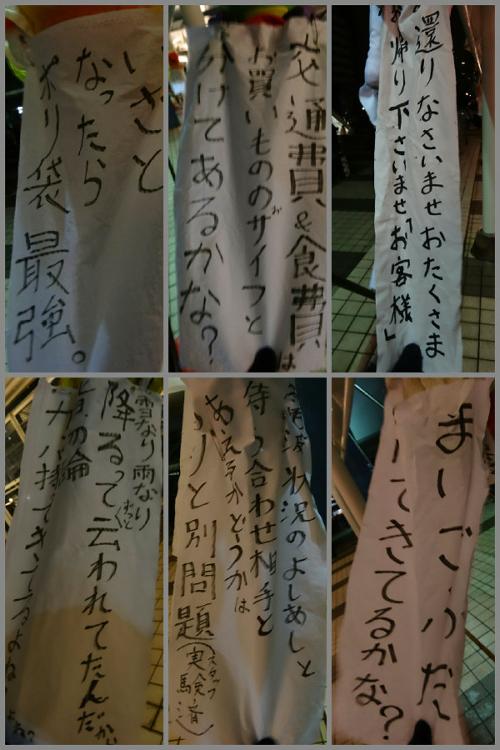 いざと
なったら
ポリ袋最強。
交通費&食費は
お買いもののザイフと
分けてあるかな?
還りなさいませおたくさま
お帰り下さいませ「お客様」
雪なり雨なり
降るって云われてたんだ
持ってきてるよね
状況のよしあしと
待ち合わせ相手と
あえるかどうかは
わりと別問題(実験済)
スタッフ
てきてるかな?